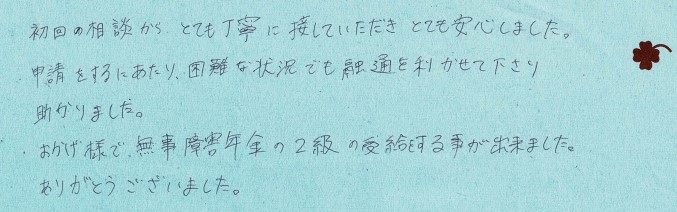 初回の相談から、とても丁寧に接していただきとても安心しました。
申請をするにあたり、困難な状況でも融通を利かせて下さり
助かりました。
おかげ様で、無事障害年金の2級の受給をする事が出来ました。
ありがとうございました。